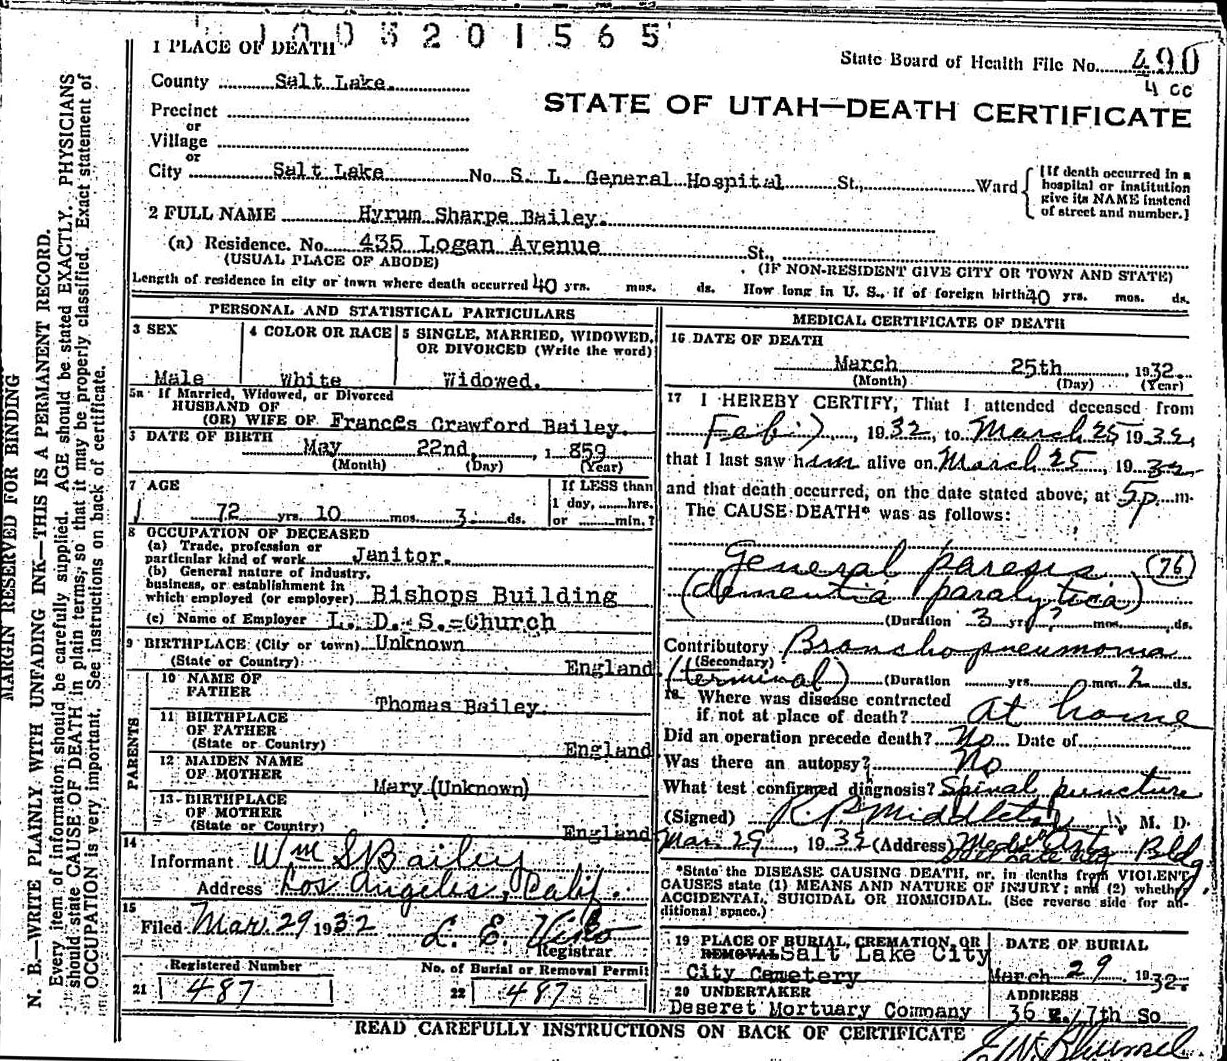 1003201565
1 PLACE OF DEATH
State Board of Health File No. 490
4 cc
County Salt Lake.
STATE OF UTAH—DEATH CERTIFICATE
Precinct
or
Village
or
City Salt Lake No. S. L. General Hospital St., Ward
[If death occurred in a hospital or institution give its NAME instead of street and number.]
2 FULL NAME Hyrum Sharpe Bailey.
(a) Residence. No. 435 Logan Avenue St.,
(USUAL PLACE OF ABODE) (IF NON-RESIDENT GIVE CITY OR TOWN AND STATE)
Length of residence in city or town where death occurred 40 yrs. mos. ds. How long in U. S., if of foreign birth 40 yrs. mos. ds.
PERSONAL AND STATISTICAL PARTICULARS
3 SEX
Male
4 COLOR OR RACE
White
5 SINGLE, MARRIED, WIDOWED, OR DIVORCED (Write the word)
Widowed.
5a If Married, Widowed, or Divorced
HUSBAND OF
(OR) WIFE OF Frances Crawford Bailey.
DATE OF BIRTH
May 22nd, 1 859
(Month) (Day) (Year)
7 AGE
72 yrs. 10 mos. 3 ds.
If LESS than
1 day, hrs.
or min.?
8 OCCUPATION OF DECEASED
(a) Trade, profession or
particular kind of work Janitor.
(b) General nature of industry,
business, or establishment in
which employed (or employer) Bishops Building
(c) Name of Employer L. D. S. Church
9 BIRTHPLACE (City or town) Unknown
(State or Country) England
PARENTS
10 NAME OF
FATHER
Thomas Bailey.
11 BIRTHPLACE
OF FATHER
(State or Country) England
12 MAIDEN NAME
OF MOTHER
Mary (Unknown)
13 BIRTHPLACE
OF MOTHER
(State or Country) England
14
Informant Wm S Bailey
Address Los Angeles, Calif.
15
Filed Mar. 29 1932 L. E.
Registrar
Registered Number No. of Burial or Removal Permit
21 487 22 487
MEDICAL CERTIFICATE OF DEATH
16 DATE OF DEATH
March 25th 1932.
(Month) (Day) (Year)
17 I HEREBY CERTIFY, That I attended deceased from
Feb. 1932, to March 25 1932,
that I last saw him alive on March 25, 1932
and that death occurred, on the date stated above, at 5 p. m.
The CAUSE DEATH* was as follows:
General paresis. (76)
(dementia paralytica)
(Duration 3 yrs? mos. ds.
Contributory Bronchopneumonia
(Secondary)
(terminal) (Duration yrs. mm. 2 ds.
18 Where was disease contracted
if not at place of death? At home
Did an operation precede death? No Date of
Was there an autopsy? No
What test confirmed diagnosis? Spinal puncture
(Signed) R P Middleton, M. D.
Mar. 29, 1932 (Address) Medical Arts Bldg
*State the DISEASE CAUSING DEATH, or, in deaths from VIOLENT
CAUSES state (1) MEANS AND NATURE OF INJURY; and (2) whether
ACCIDENTAL, SUICIDAL OR HOMICIDAL. (See reverse side for ad-
ditional space.)
19 PLACE OF BURIAL, CREMATION, OR
REMOVAL Salt Lake City
City Cemetery
DATE OF BURIAL
March 29 1932.
20 UNDERTAKER
Deseret Mortuary Company
ADDRESS
36 E. 7th So
READ CAREFULLY INSTRUCTIONS ON BACK OF CERTIFICATE
MARGIN RESERVED FOR BINDING
N. B.—WRITE PLAINLY, WITH UNFADING INK—THIS IS A PERMANENT RECORD.
Every item of information should be carefully supplied. AGE should be stated EXACTLY. PHYSICIANS
should state CAUSE OF DEATH in plain terms, so that it may be properly classified. Exact statement of
OCCUPATION is very important. See instructions on back of certificate.